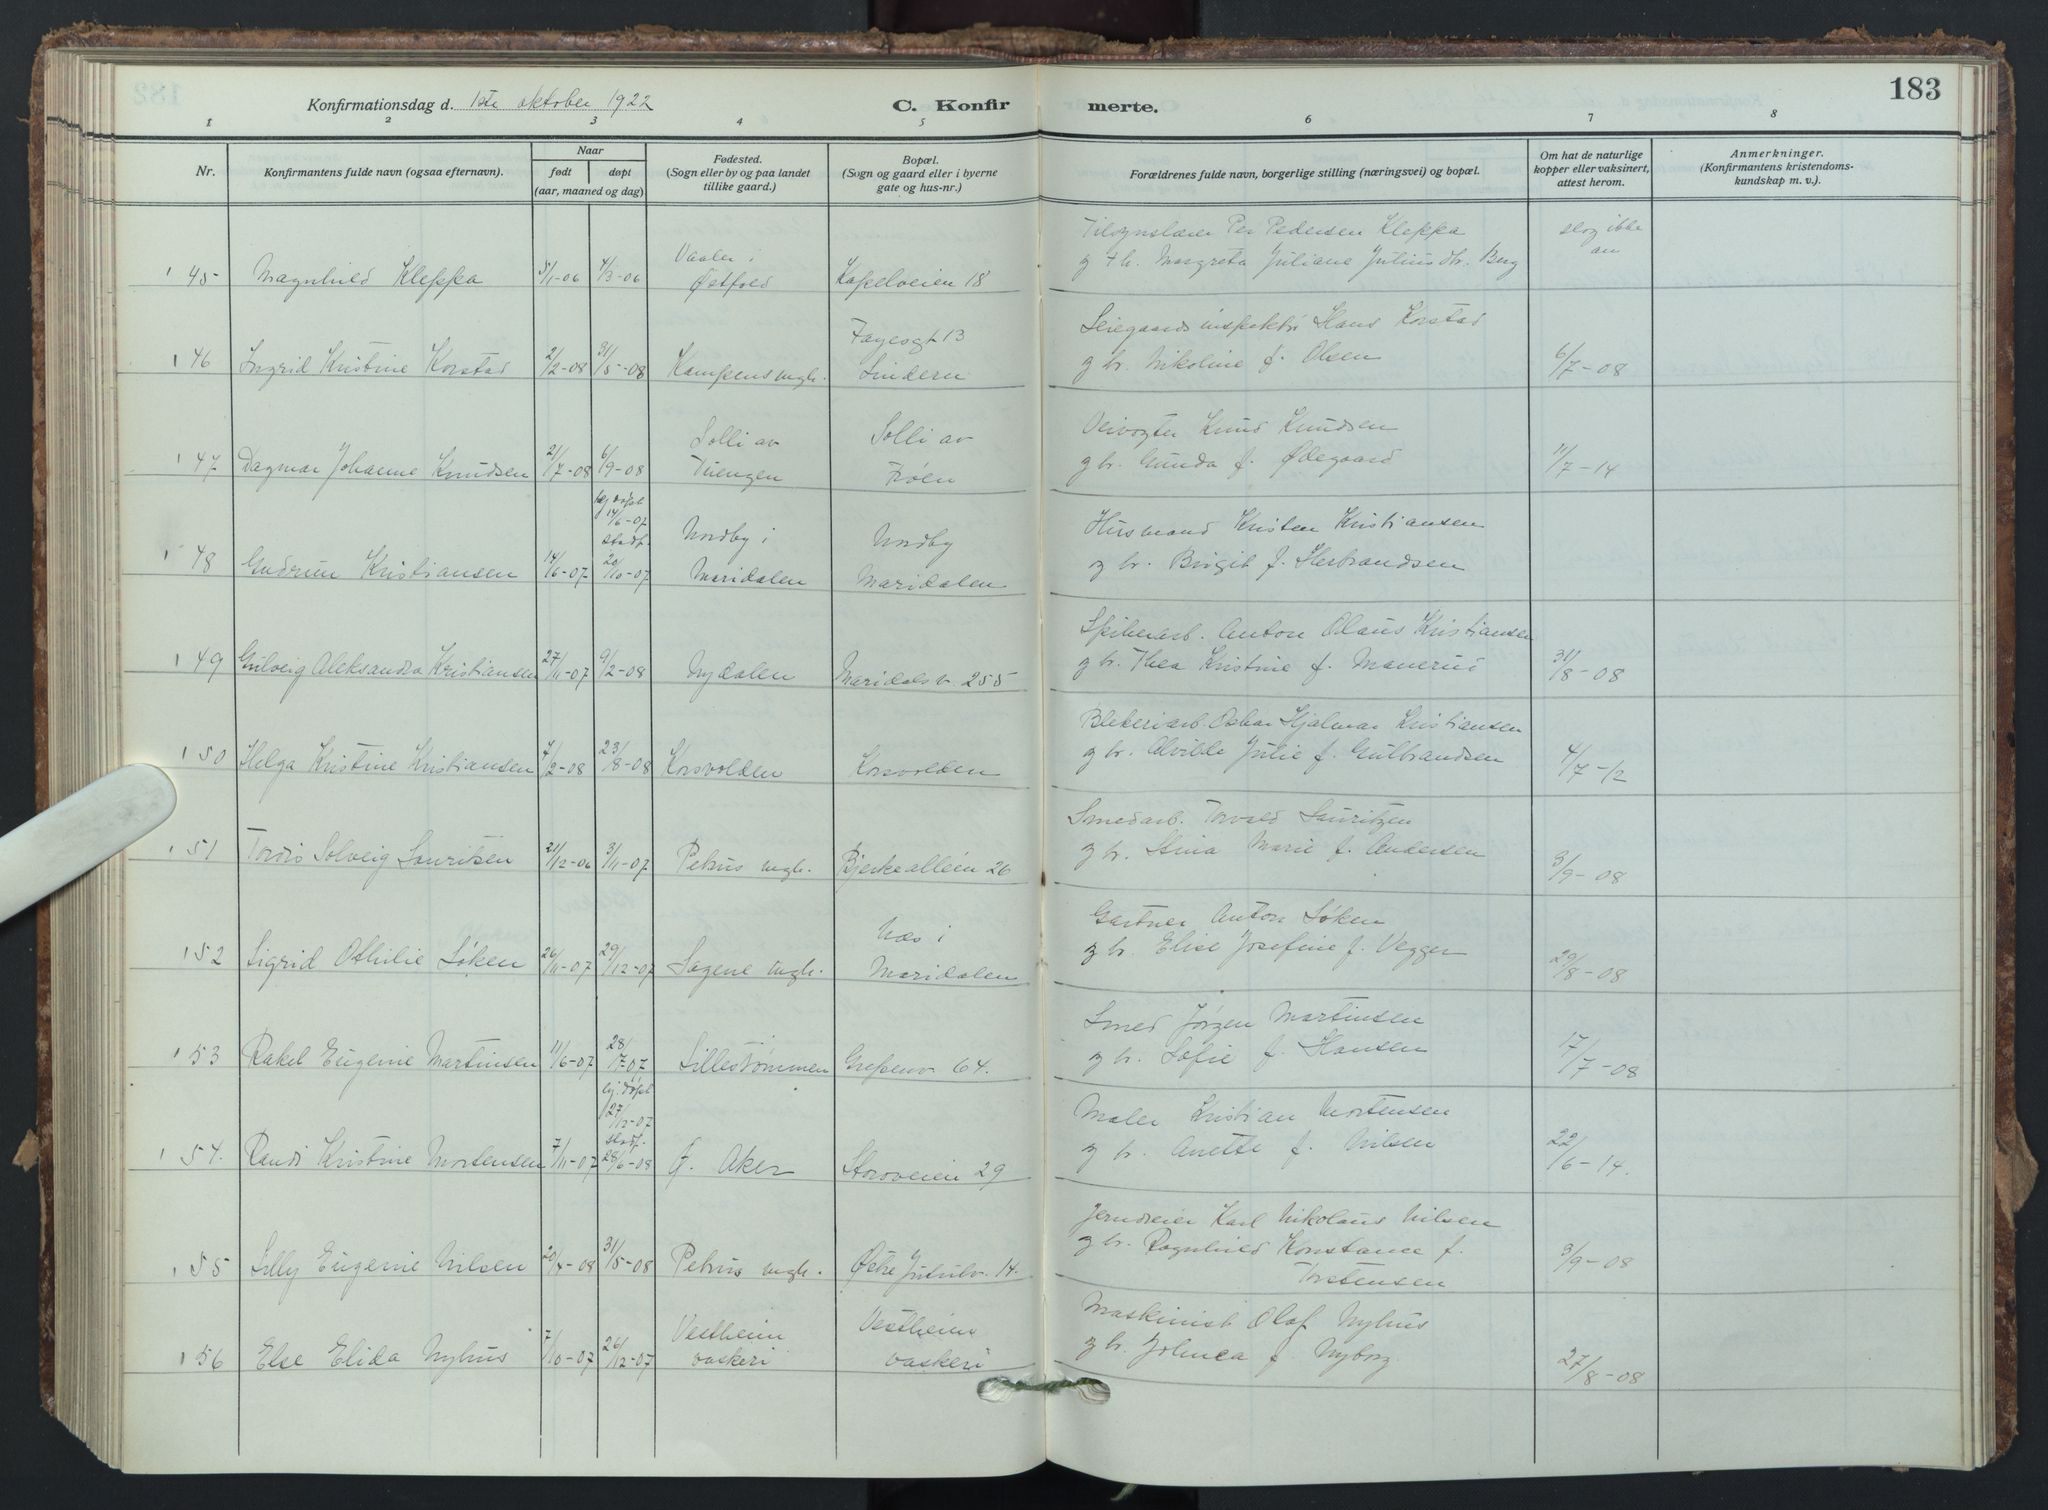 183
Konfirmationsdag d. 1ste oktober 1922
C. Konfir merte.
1 2 3 4 5 6 7 8
Nr.
Konfirmantens fulde navn (ogsaa efternavn).
Naar
født døpt
(aar, maaned og dag)
Fødested.
(Sogn eller by og paa landet
tillike gaard.)
Bopæl.
(Sogn og gaard eller i byerne
gate og hus-nr.)
Forældrenes fulde navn, borgerlige stilling (næringsvei) og bopæl.
Om hat de naturlige
kopper eller vaksinert,
attest herom.
Anmerkninger.
(Konfirmantens kristendoms-
kundskap m. v.).
45 Magnhild Kleppa 5/1-06 4/3-06 Vaaler i Østfold Kapelveien 18
Per Pedersen Kleppa
g. h. Margreta Juliane Juliusdtr. Berg
slog ikke an
46 Ingrid Kristine Korstad 2/2-08 31/5-08 Kampens mgh. Fayesgt 13 Lindern
Leiegaardsinspektør Hans Korstad
g hr. Nikoline f. Olsen
6/7-08
47 Dagmar Johanne Knudsen 21/7-08 6/9-08 Solli av Tuengen Solli av Frøen
Veivogter Knud Knudsen
g hr. Gunda f. Ødegaard
11/7-14
48 Gudrun Kristiansen 14/6-07 hj. døpt 14/6-07 stadf. 20/10-07 Nordby i Maridalen Nordby Maridalen
Husmand Kristen Kristiansen
g hr. Birgit f. Herbrandsen
49 Gulveig Aleksandra Kristiansen 27/11-07 9/2-08 Nydalen Maridalsv. 255
Spikerarb. Anton Olaus Kristiansen
g hr. Thea Kristine f. Manerud
31/8-08
50 Helga Kristine Kristiansen 4/2-08 23/8-08 Korsvolden Korsvolden
Blekeriarb. Oskar Hjalmar Kristiansen
g hr. Alvilde Julie f. Gulbrandsen
4/7-12
51 Tordis Solveig Lauritsen 21/12-06 3/11-07 Petrus mgh. Bjerkealleen 26
Smedarb. Torvald Lauritzen
g hr. Stina Marie f. Andersen
3/9-08
52 Sigrid Othilie Løken 26/11-07 29/12-07 Sagene mgh. Næs i Maridalen
Gartner Anton Løken
g hr. Elise Josefine f. Vegger
29/8-08
53 Rakel Eugenie Martinsen 11/6-07 28/7-07 Lillestrømmen Grefsenv. 64.
Smed Jørgen Martinsen
g hr. Sofie f. Hansen
17/7-08
54. Randi Kristine Mortensen 7/11-07 hj. døpt 27/12-07 stadf. 28/6-08 Ø. Aker Storoveien 29
Maler Kristian Mortensen
g hr. Anette f. Nilsen
22/6-14.
55 Lilly Eugenie Nilsen 20/4-08 31/5-08 Petrus mgh. Østre Jutulv. 14.
Jerndreier Karl Nikolaus Nilsen
g hr. Ragnhild Konstance f.
Torstensen
3/9-08
56 Else Elida Nyhus 7/10-07 26/12-07 Vestheim vaskeri Vestheim vaskeri
Maskinist Olaf Nyhus
g hr. f. Nyborg
27/8-08